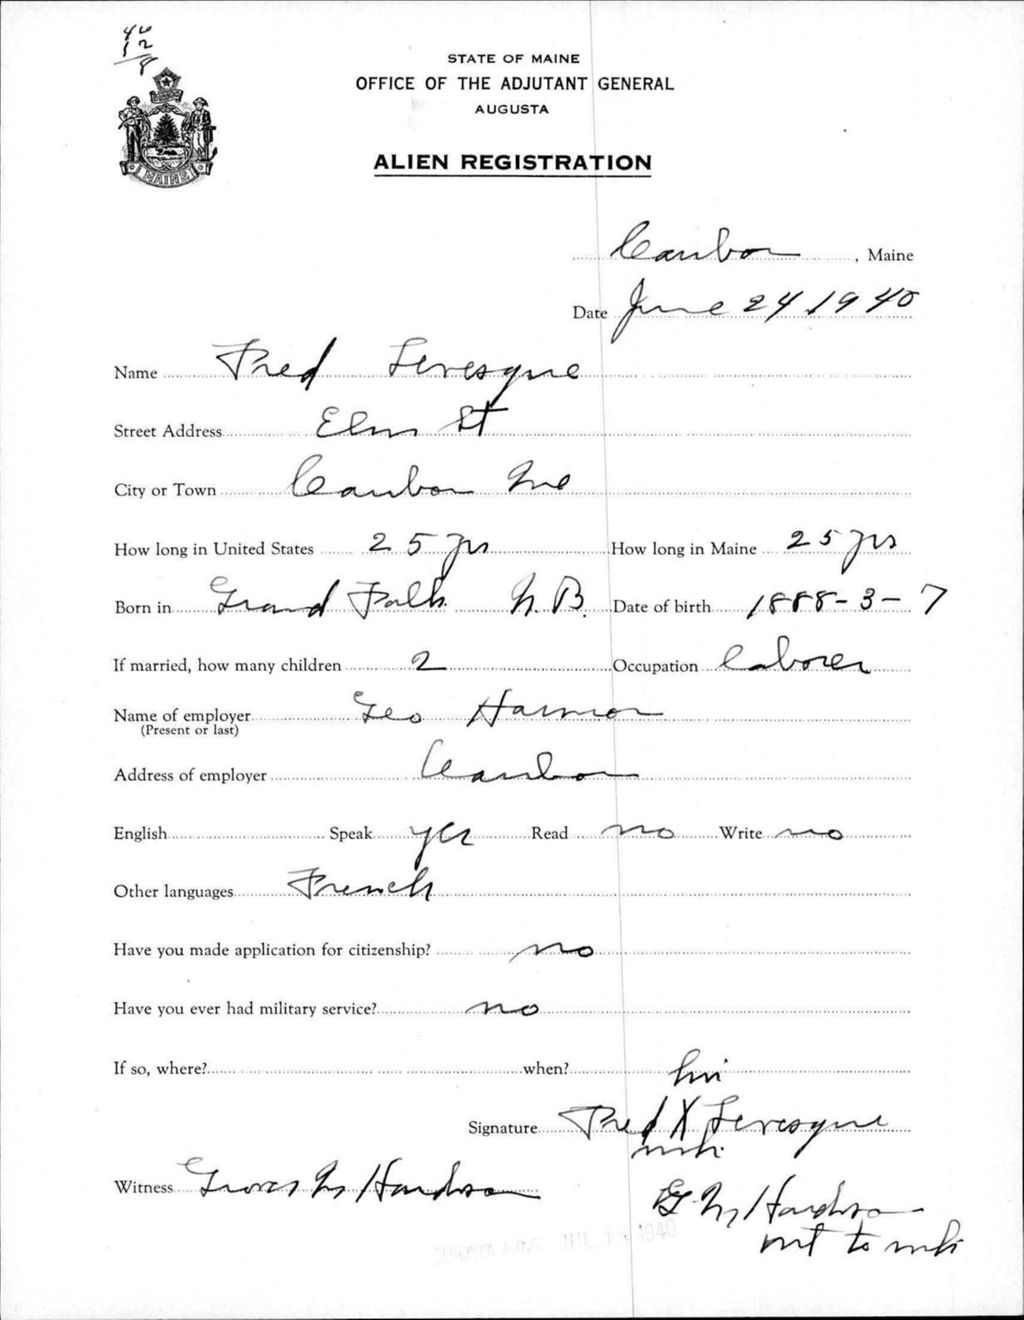 40
12
8
STATE OF MAINE
OFFICE OF THE ADJUTANT GENERAL
AUGUSTA
ALIEN REGISTRATION
MAINE
Caribou, Maine
Date June 24 1940
Name Fred Levesque
Street Address Elm St
City or Town Caribou Me
How long in United States 25 yrs How long in Maine 25 yrs
Born in Grand Falls N. B. Date of birth 1888-3-7
If married, how many children 2 Occupation laborer
Name of employer Geo Harmon
(Present or last)
Address of employer Caribou
English Speak yes Read no Write no
Other languages French
Have you made application for citizenship? no
Have you ever had military service? no
If so, where? when?
his
Signature Fred X Levesque
mk.
Witness M Hardison
G M Hardison
wit to mk
1940